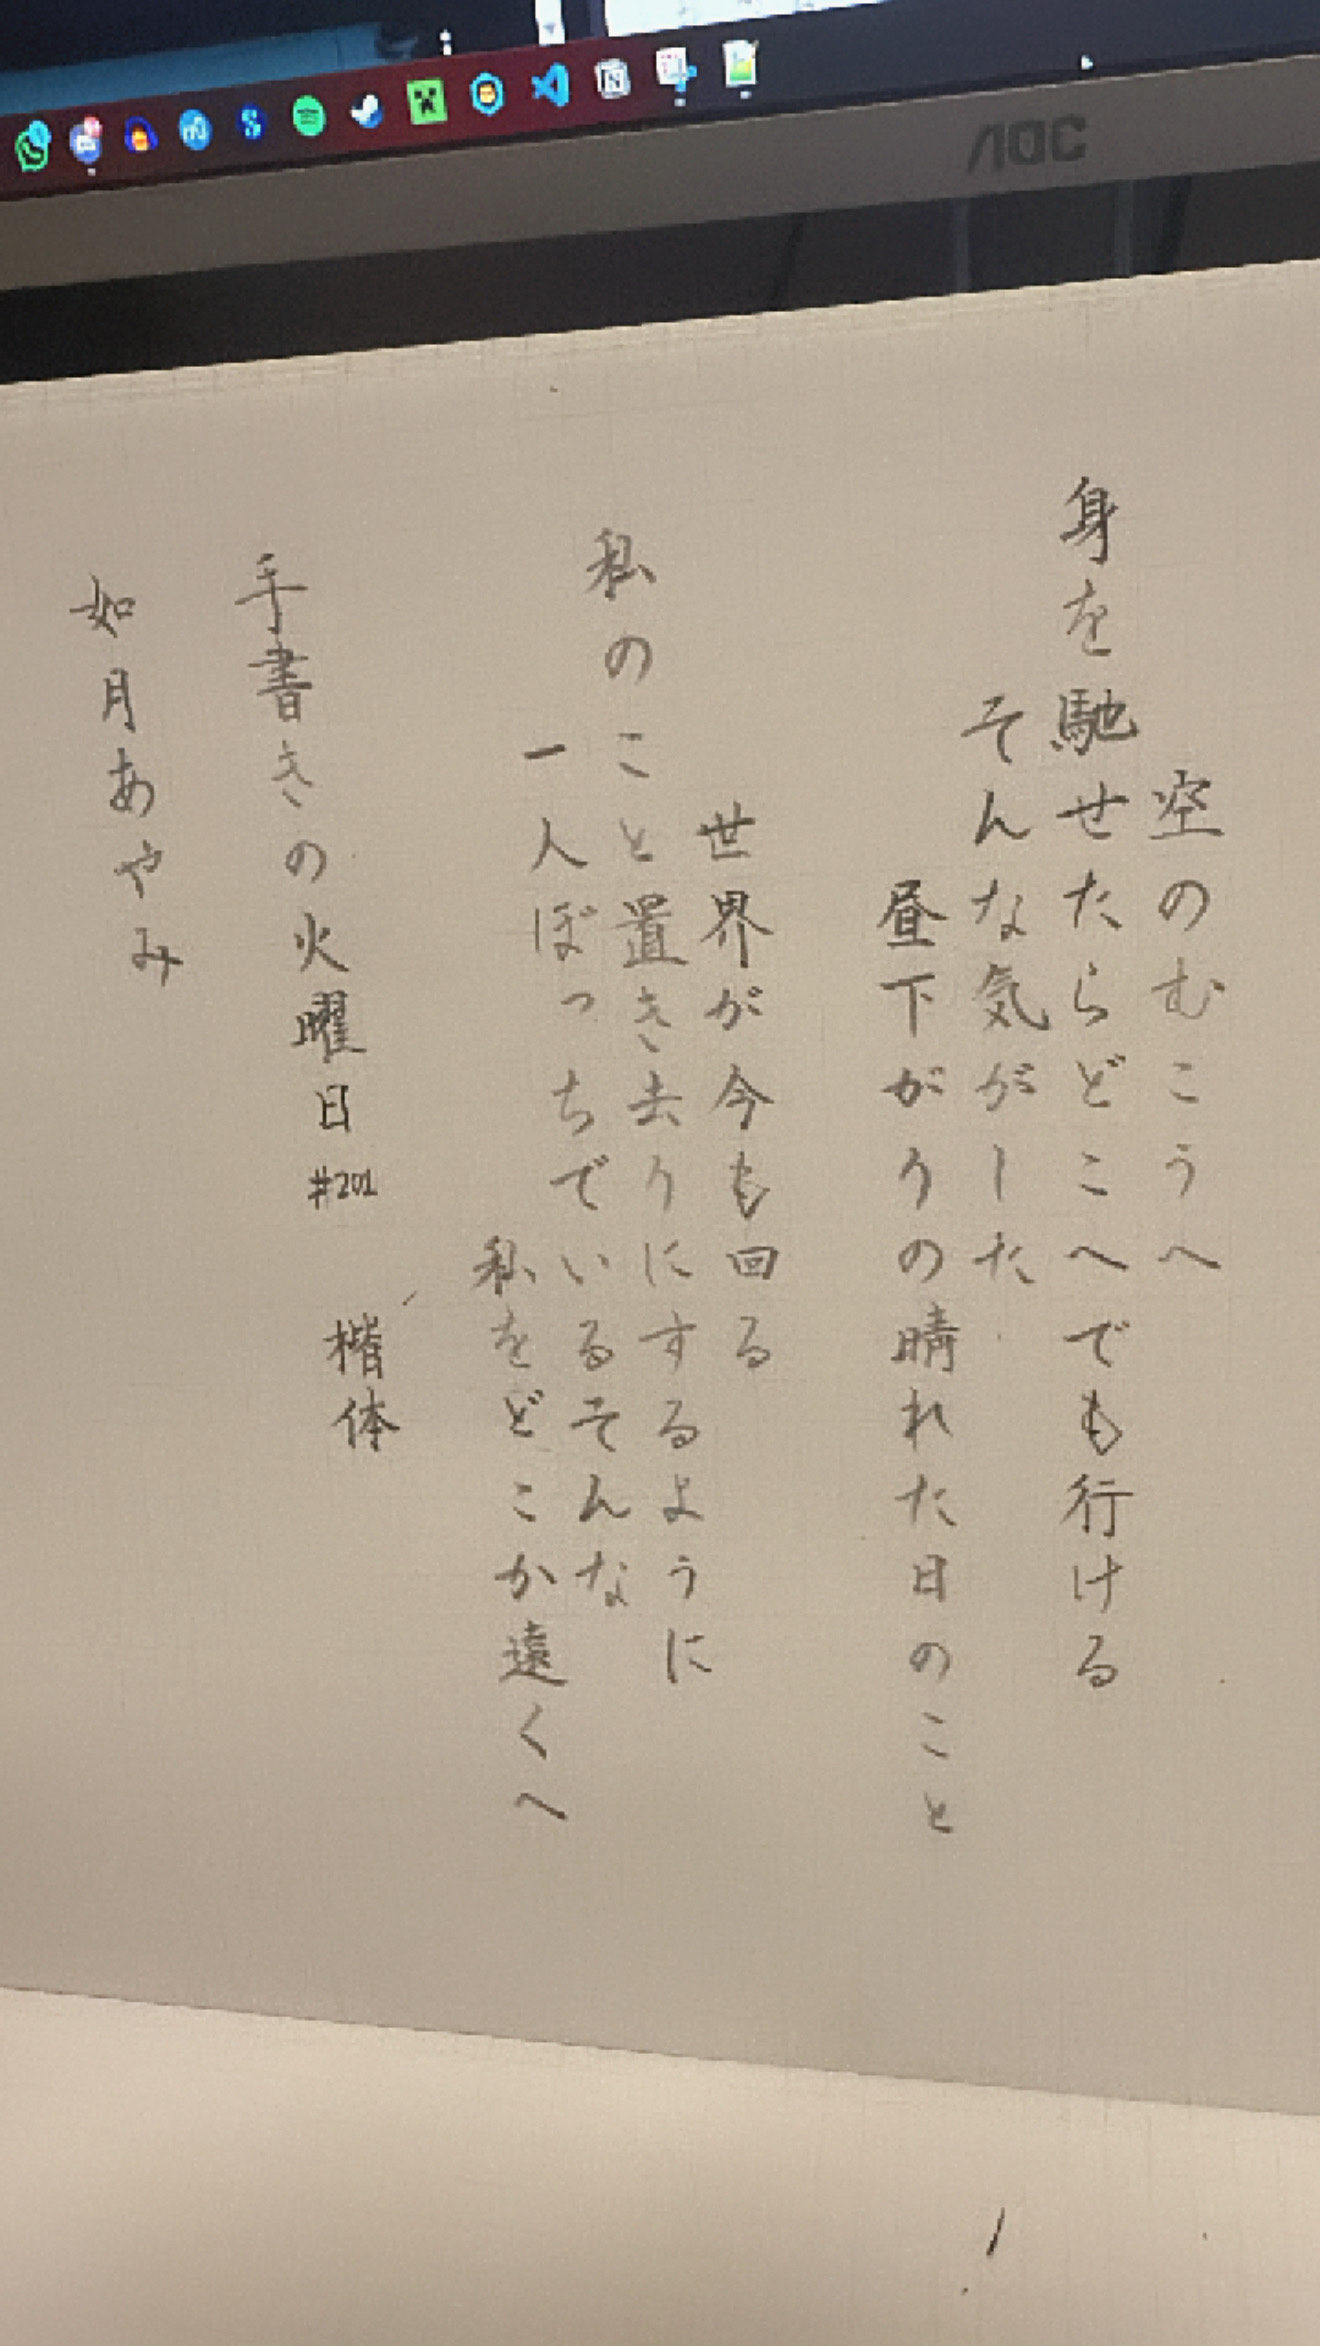 AOC
空のむこうへ
身を馳せたらどこへでも行ける
そんな気がした
昼下がりの晴れた日のこと
世界が今も回る
私のこと置き去りにするように
一人ぼっちでいるそんな
私をどこか遠くへ
手書きの火曜日 #201 楷体
如月あやみ